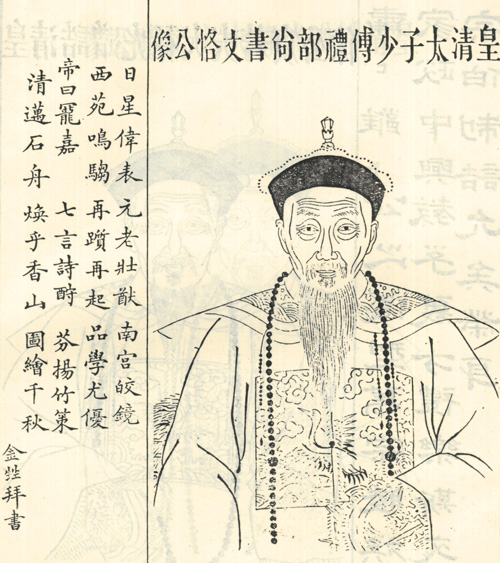 皇清太子少傅禮部尚書文恪公像
日星偉表元老壯猷南宮皎鏡
西苑鳴騶再躓再起品學尤優
帝曰寵嘉七言詩酧芬揚竹策
清邁石舟煥乎香山圖繪千秋
金甡拜書